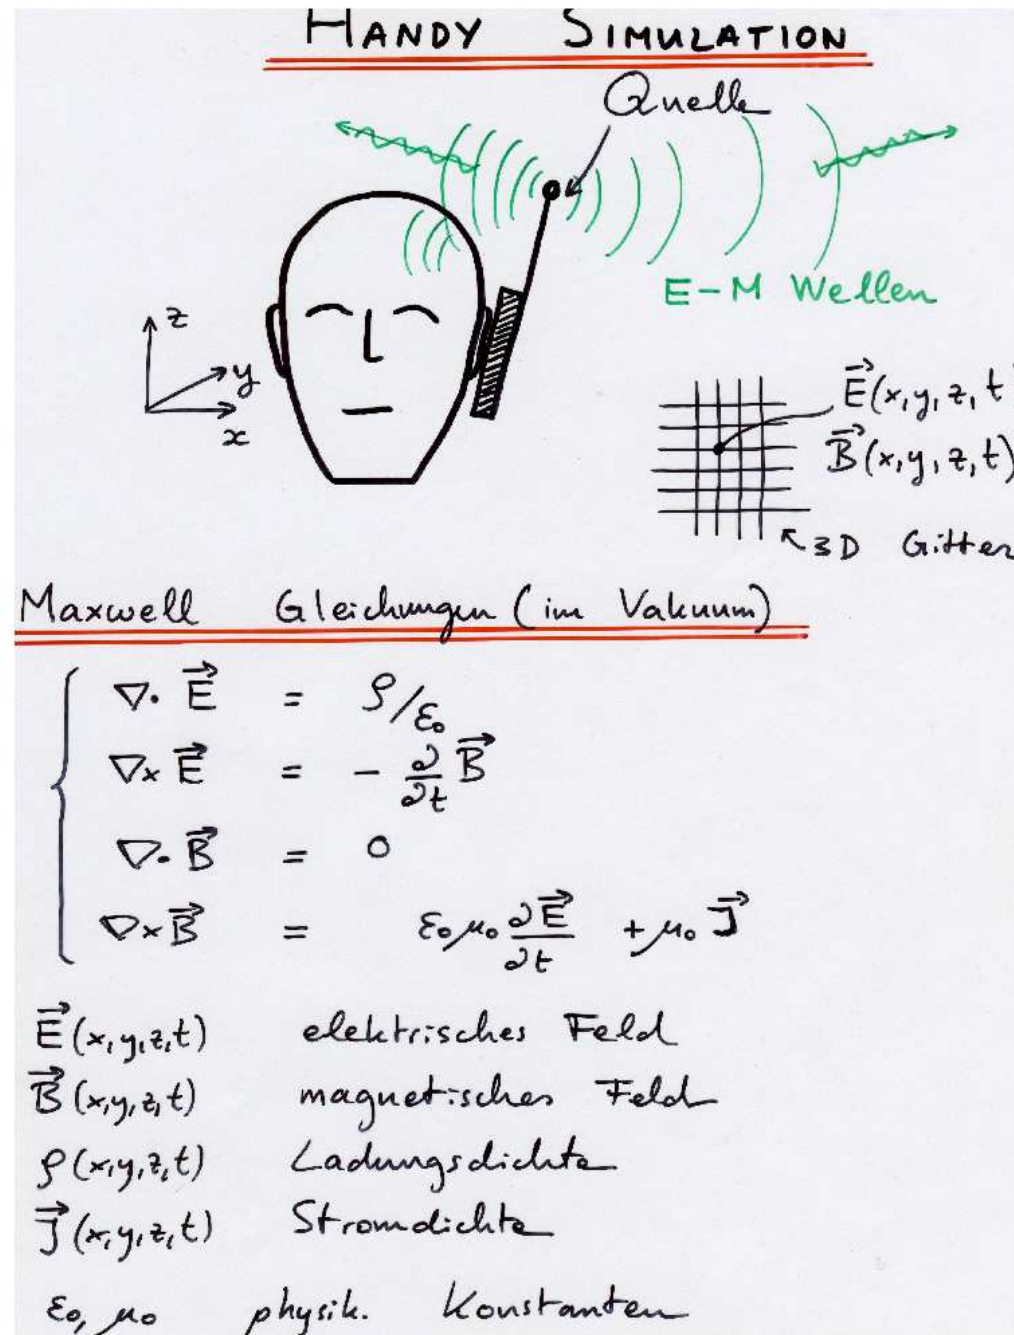 HANDY SIMULATION
Quelle
E-M Wellen
z
y
x
E⃗(x,y,z,t
B⃗(x,y,z,t)
3D Gitter
Maxwell Gleichungen (im Vakuum)
∇· E⃗ = ρ/ε₀
∇× E⃗ = - ∂/∂t B⃗
∇· B⃗ = 0
∇× B⃗ = ε₀μ₀ ∂E⃗/∂t + μ₀ J⃗
E⃗(x,y,z,t) elektrisches Feld
B⃗(x,y,z,t) magnetisches Feld
ρ(x,y,z,t) Ladungsdichte
J⃗(x,y,z,t) Stromdichte
ε₀, μ₀ physik. Konstanten